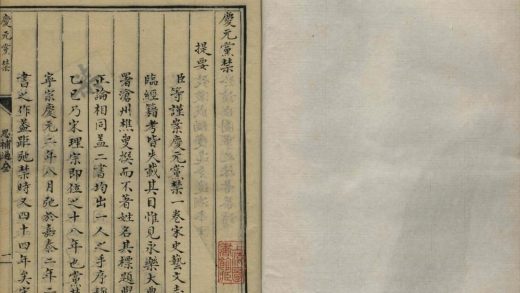 慶元黨禁
提要
臣等謹案慶元黨禁一卷宋史藝文志
臨經籍考皆失載其目惟見永樂大典
署滄州樵叟撰而不著姓名其標題與
正論相同蓋二書均出一人之手序稱
乙巳乃宋理宗即位之十八年也黨禁
寧宗慶元二年八月弛於嘉泰二年二
書之作蓋距弛禁時又四十四年矣宋
慶元黨禁